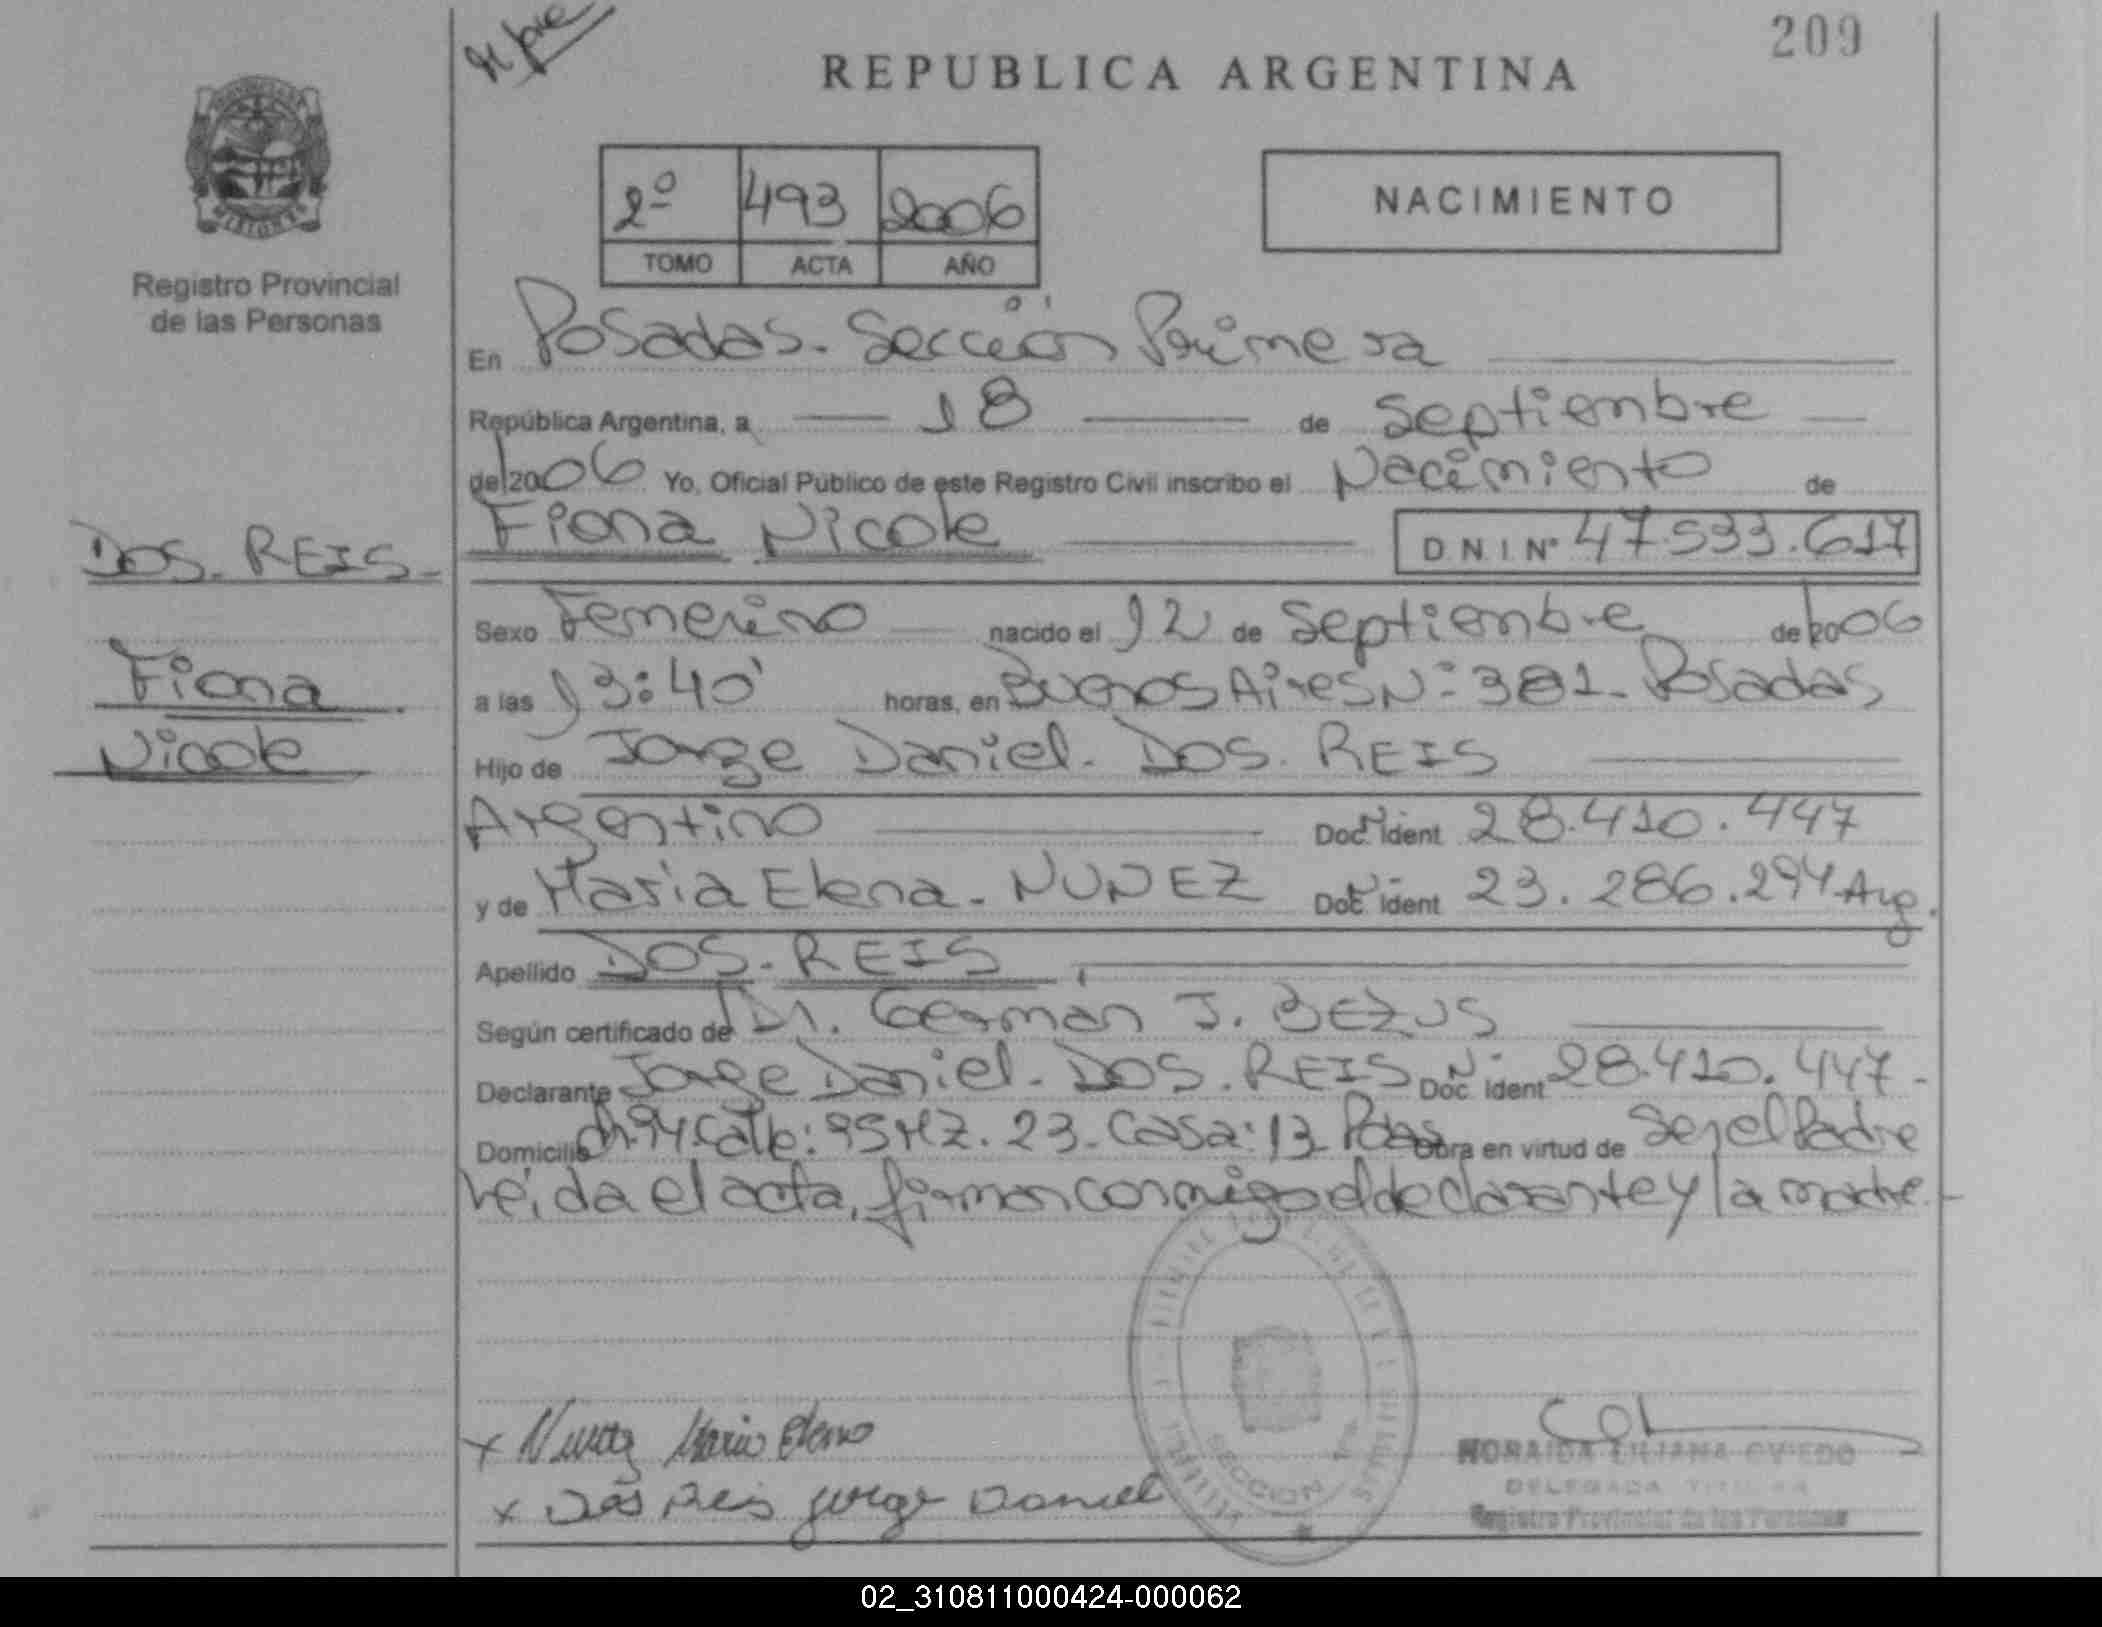 209
REPUBLICA ARGENTINA
2º 493 2006
TOMO ACTA AÑO
NACIMIENTO
MISIONES
Registro Provincial
de las Personas
En Posadas. Sección Primera
República Argentina, a 18 de Septiembre
del 2006 Yo, Oficial Público de este Registro Civil inscribo el Nacimiento de
Fiona Nicole D N I Nº 47.533.617
DOS. REIS.
Fiona
Nicole
Sexo Femenino nacido el 12 de Septiembre del 2006
a las 13:40' horas, en Buenos Aires Nº 381. Posadas
Hijo de Jorge Daniel. DOS. REIS
Argentino Doc. Nº Ident 28.410.447
y de Maria Elena. NUNEZ Doc. Nº Ident 23.286.294 Arg.
Apellido DOS. REIS
Según certificado de Dr. German J. BEZUS
Declarante Jorge Daniel. DOS. REIS Doc. Nº Ident 28.410.447.
Domicilio Ch.94 Calle: 95 Mz. 23. Casa: 13 Pdas Obra en virtud de Ser el Padre
Leída el acta, firman conmigo el declarante y la madre.
x Nuñez Maria Elena
x Dos Reis Jorge Daniel
SECCION 1ra
HORAIDA LILIANA OVIEDO
DELEGADA TITULAR
Registro Provincial de las Personas
02_310811000424-000062